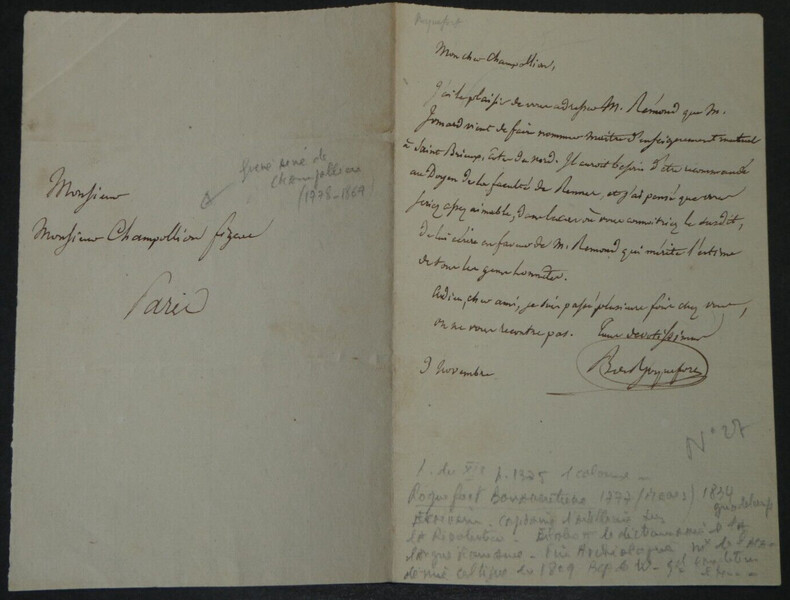 Monsieur
Monsieur Champollion figeac
Paris
frère aîné de
Champollion
(1778-1869)
Roquefort
Mon cher Champollion,
J'ai le plaisir de vous adresser M. Rémond que M.
Jomard vient de faire nommer maître d'enseignement mutuel
à Saint Brieuc, Côte du nord. Il auroit besoin d'être recommandé
au Doyen de la faculté de Rennes, et j'ai pensé que vous
seriez assez aimable, dans le cas où vous connoitriez le susdit,
de lui écrire en faveur de M. Remond qui mérite l'estime
de tous les gens honnêtes.
Adieu, cher ami, je suis passé plusieurs fois chez vous,
on ne vous rencontre pas. Tuus devotissimus
B. de Roquefort
9 novembre
N° 27
L. du XIX p. 1375 1 colonne
Roquefort Bonaventure 1777 (Mons) 1834
Guadeloupe
Écrivain - capitaine d'artillerie sous
la Révolution - dictionnaire de la
langue Romane - Archéologue
celtique du 1809